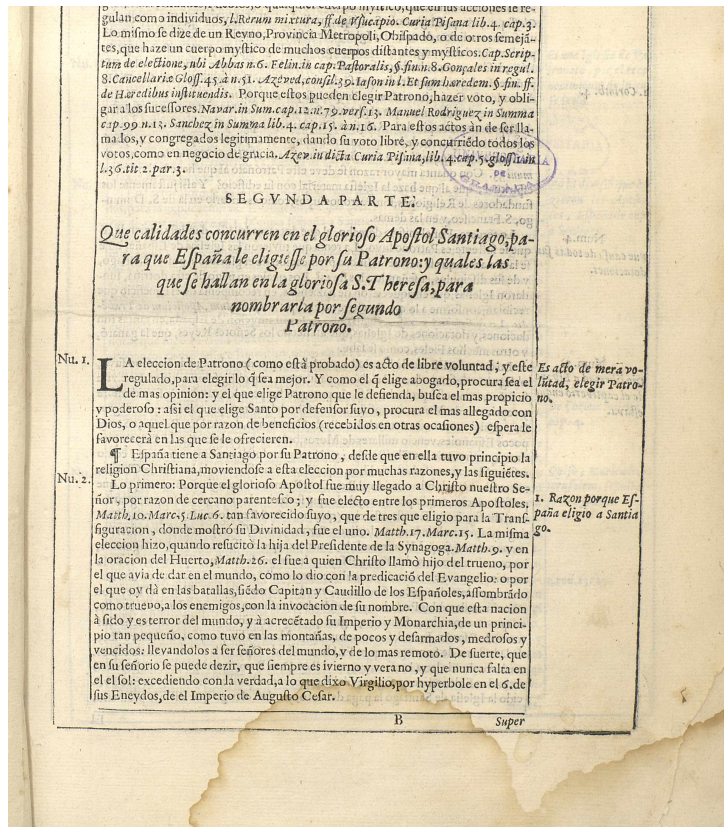 gulan como individuos, l. Rerum mixtura, ff. de Vsucapio. Curia Pisana lib. 4. cap. 3.
Lo mismo se dize de un Reyno, Provincia Metropoli, Obispado, o de otros semejã-
tes, que haze un cuerpo mystico de muchos cuerpos distantes y mysticos. Cap. Scrip-
tum de electione, ubi Abbas n. 6. Felin. in cap. Pastoralis, §. fin. n. 8. Gonçales in regul.
8. Cancellariæ Gloss. 45. à n. 51. Azeved, consil. 39. Iason in l. Et sum hæredem. §. fin. ff.
de Hæredibus instituendis. Porque estos pueden elegir Patrono, hazer voto, y obli-
gar a los sucessores. Navar. in Sum. cap. 12. n. 79. vers. 13. Manuel Rodriguez in Summa
cap. 99 n. 13. Sanchez in Summa lib. 4. cap. 15. à n. 16. Para estos actos àn de ser lla-
mados, y congregados legitimamente, dando su voto libre, y concurriẽdo todos los
votos, como en negocio de gracia. Azev. in dicta Curia Pisana, lib. 4. cap. 5. gloss. 1. in
l. 36. tit 2. par. 3.
SEGVNDA PARTE.
Que calidades concurren en el glorioso Apostol Santiago, pa-
ra que España le eligiesse por su Patrono: y quales las
que se hallan en la gloriosa S. Theresa, para
nombrarla por segundo
Patrono.
Nu. 1.
LA eleccion de Patrono (como està probado) es acto de libre voluntad; y este
regulado, para elegir lo q̃ sea mejor. Y como el q̃ elige abogado, procura sea el
de mas opinion: y el que elige Patrono que le defienda, busca el mas propicio
y poderoso: assi el que elige Santo por defensor suyo, procura el mas allegado con
Dios, o aquel que por razon de beneficios (recebidos en otras ocasiones) espera le
favorecerà en las que se le ofrecieren.
Es acto de mera vo-
lũtad, elegir Patro-
no.
¶ España tiene a Santiago por su Patrono, desde que en ella tuvo principio la
religion Christiana, moviendose a esta eleccion por muchas razones, y las siguiẽtes.
Nu. 2.
Lo primero: Porque el glorioso Apostol fue muy llegado a Christo nuestro Se-
ñor, por razon de cercano parentesco; y fue electo entre los primeros Apostoles.
Matth. 10. Marc. 5. Luc. 6. tan favorecido suyo, que de tres que eligio para la Trans-
figuracion, donde mostrò su Divinidad, fue el uno. Matth. 17. Marc. 15. La misma
eleccion hizo, quando resucitò la hija del Presidente de la Synagoga. Matth. 9. y en
la oracion del Huerto, Matth. 26. el fue a quien Christo llamò hijo del trueno, por
el que avia de dar en el mundo, como lo dio con la predicaciõ del Evangelio: o por
el que oy dà en las batallas, siẽdo Capitan y Caudillo de los Españoles, assombrãdo
como trueno, a los enemigos, con la invocacion de su nombre. Con que esta nacion
à sido y es terror del mundo, y à acrecẽtado su Imperio y Monarchia, de un princi-
pio tan pequeño, como tuvo en las montañas, de pocos y desarmados, medrosos y
vencidos: llevandolos a ser señores del mundo, y de lo mas remoto. De suerte, que
en su señorio se puede dezir, que siempre es ivierno y verano, y que nunca falta en
el el sol: excediendo con la verdad, a lo que dixo Virgilio, por hyperbole en el 6. de
sus Eneydos, de el Imperio de Augusto Cesar.
1. Razon porque Es-
paña eligio a Santia
go.
B
Super